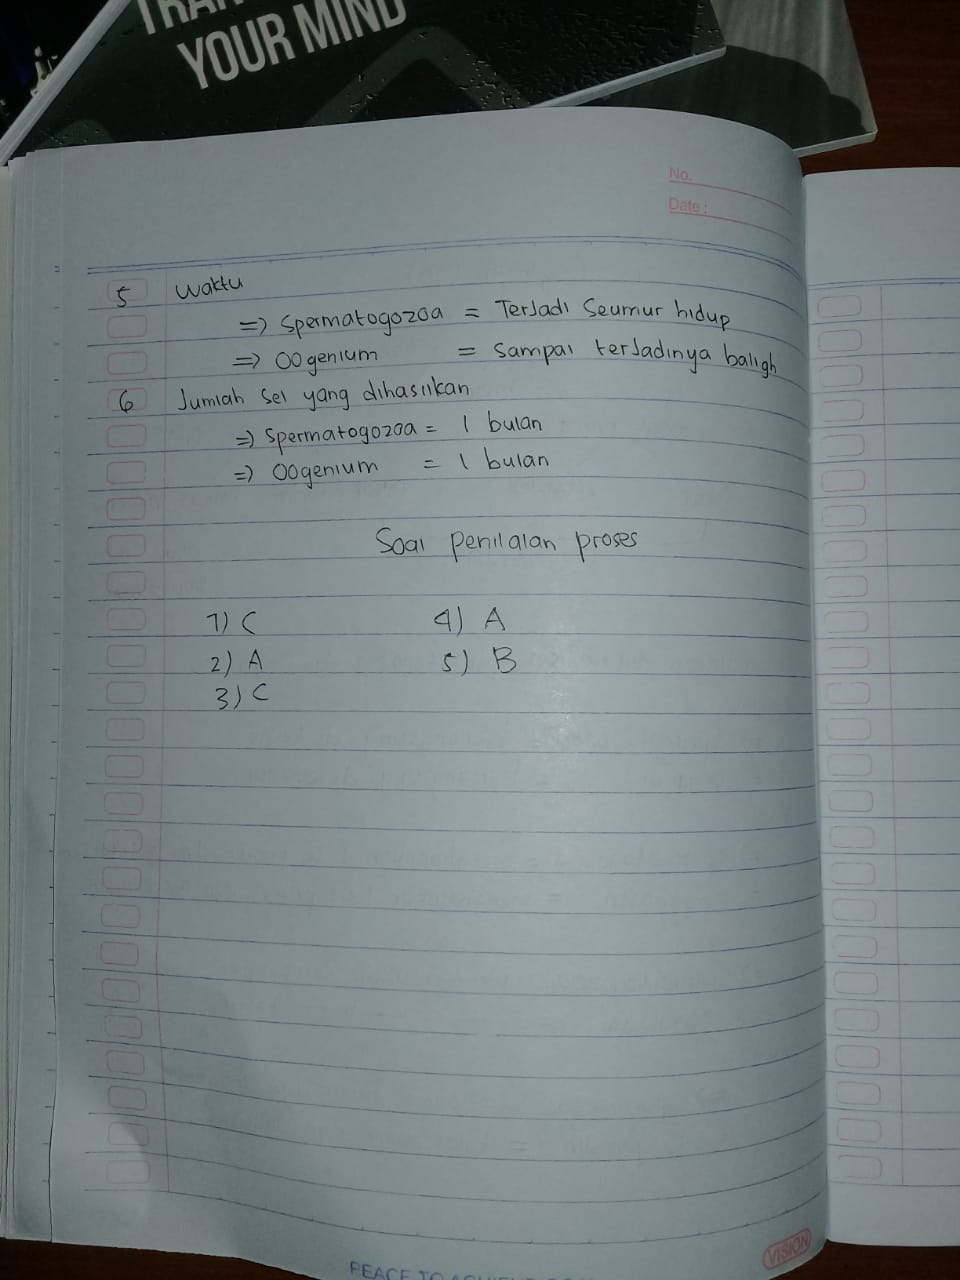 YOUR MIND
No.
Date :
5 Waktu
=> Spermatogozoa = Terjadi Seumur hidup
=> OOgenium = Sampai terjadinya baligh
6 Jumlah sel yang dihasilkan
=> Spermatogozoa = 1 bulan
=> OOgenium = 1 bulan
Soal penilaian proses
1) C 4) A
2) A 5) B
3) C
VISION
PEACE TO